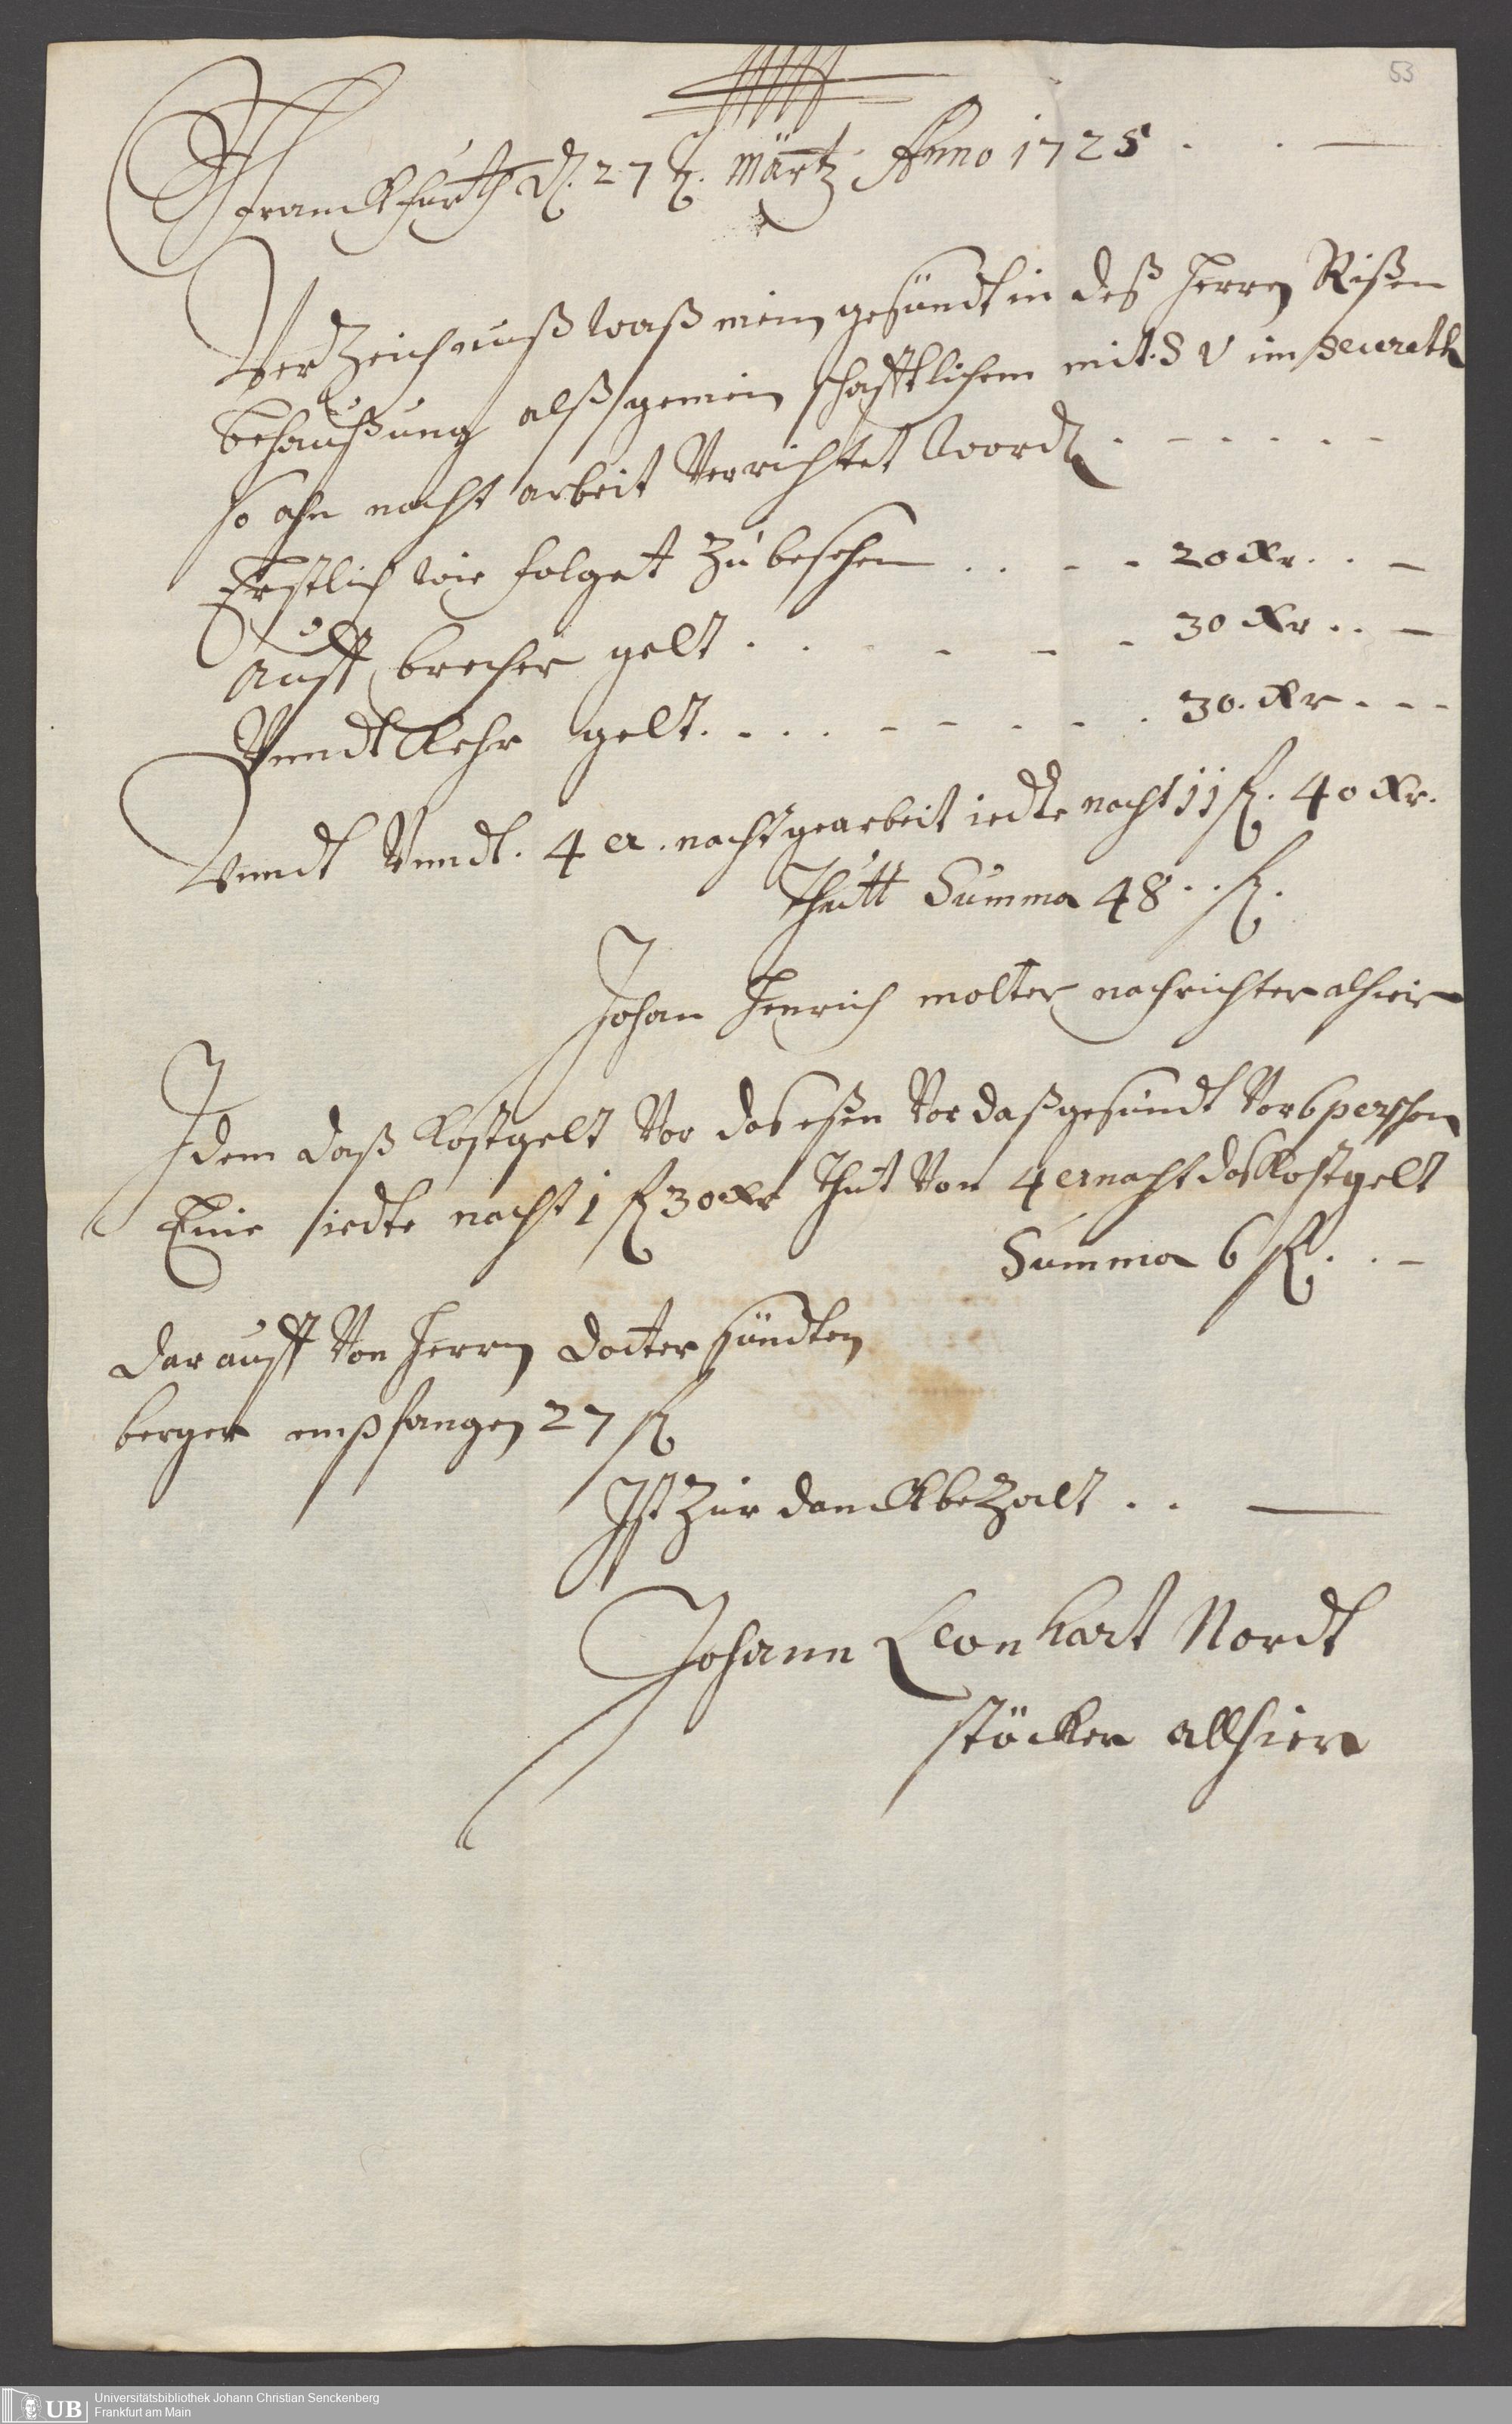 53
Franckfurth d. 27 t. Märtz Anno 1725
Ver Zeichnuß waß mein gesündt in deß Herrn Rißen
behaußung alß gemein schafftlichem mit. S V im Seureth
so ahn nacht arbeit Verrichtet word
Erstlich wie folget Zu besehen . . - - 20 Xr. . . -
Auff brecher gelt . . . - - - 30 Xr . . -
Vnndt Kehr gelt. - . . - - - - . 30. Xr - - -
Vnndt Vnndt. 4 er. nacht gearbeit iedte nacht 11 fl. 40 Xr.
Thutt Summa 48 . . fl.
Johan Henrich molter nachrichter alhier
Idem daß Kostgelt Vor das eßen Vor daß gesündt Vor 6 perschon
Eine iedte nacht 1 fl 30 Xr Thut Von 4 er nacht das Kostgelt
Summa 6 fl. . -
dar auff Von Herrn docter sündten
berger empfangen 27 fl
Ist Zur danck beZalt . . —
Johann Leonhart Nordt
stöcker allhier
UB
Universitätsbibliothek Johann Christian Senckenberg
Frankfurt am Main